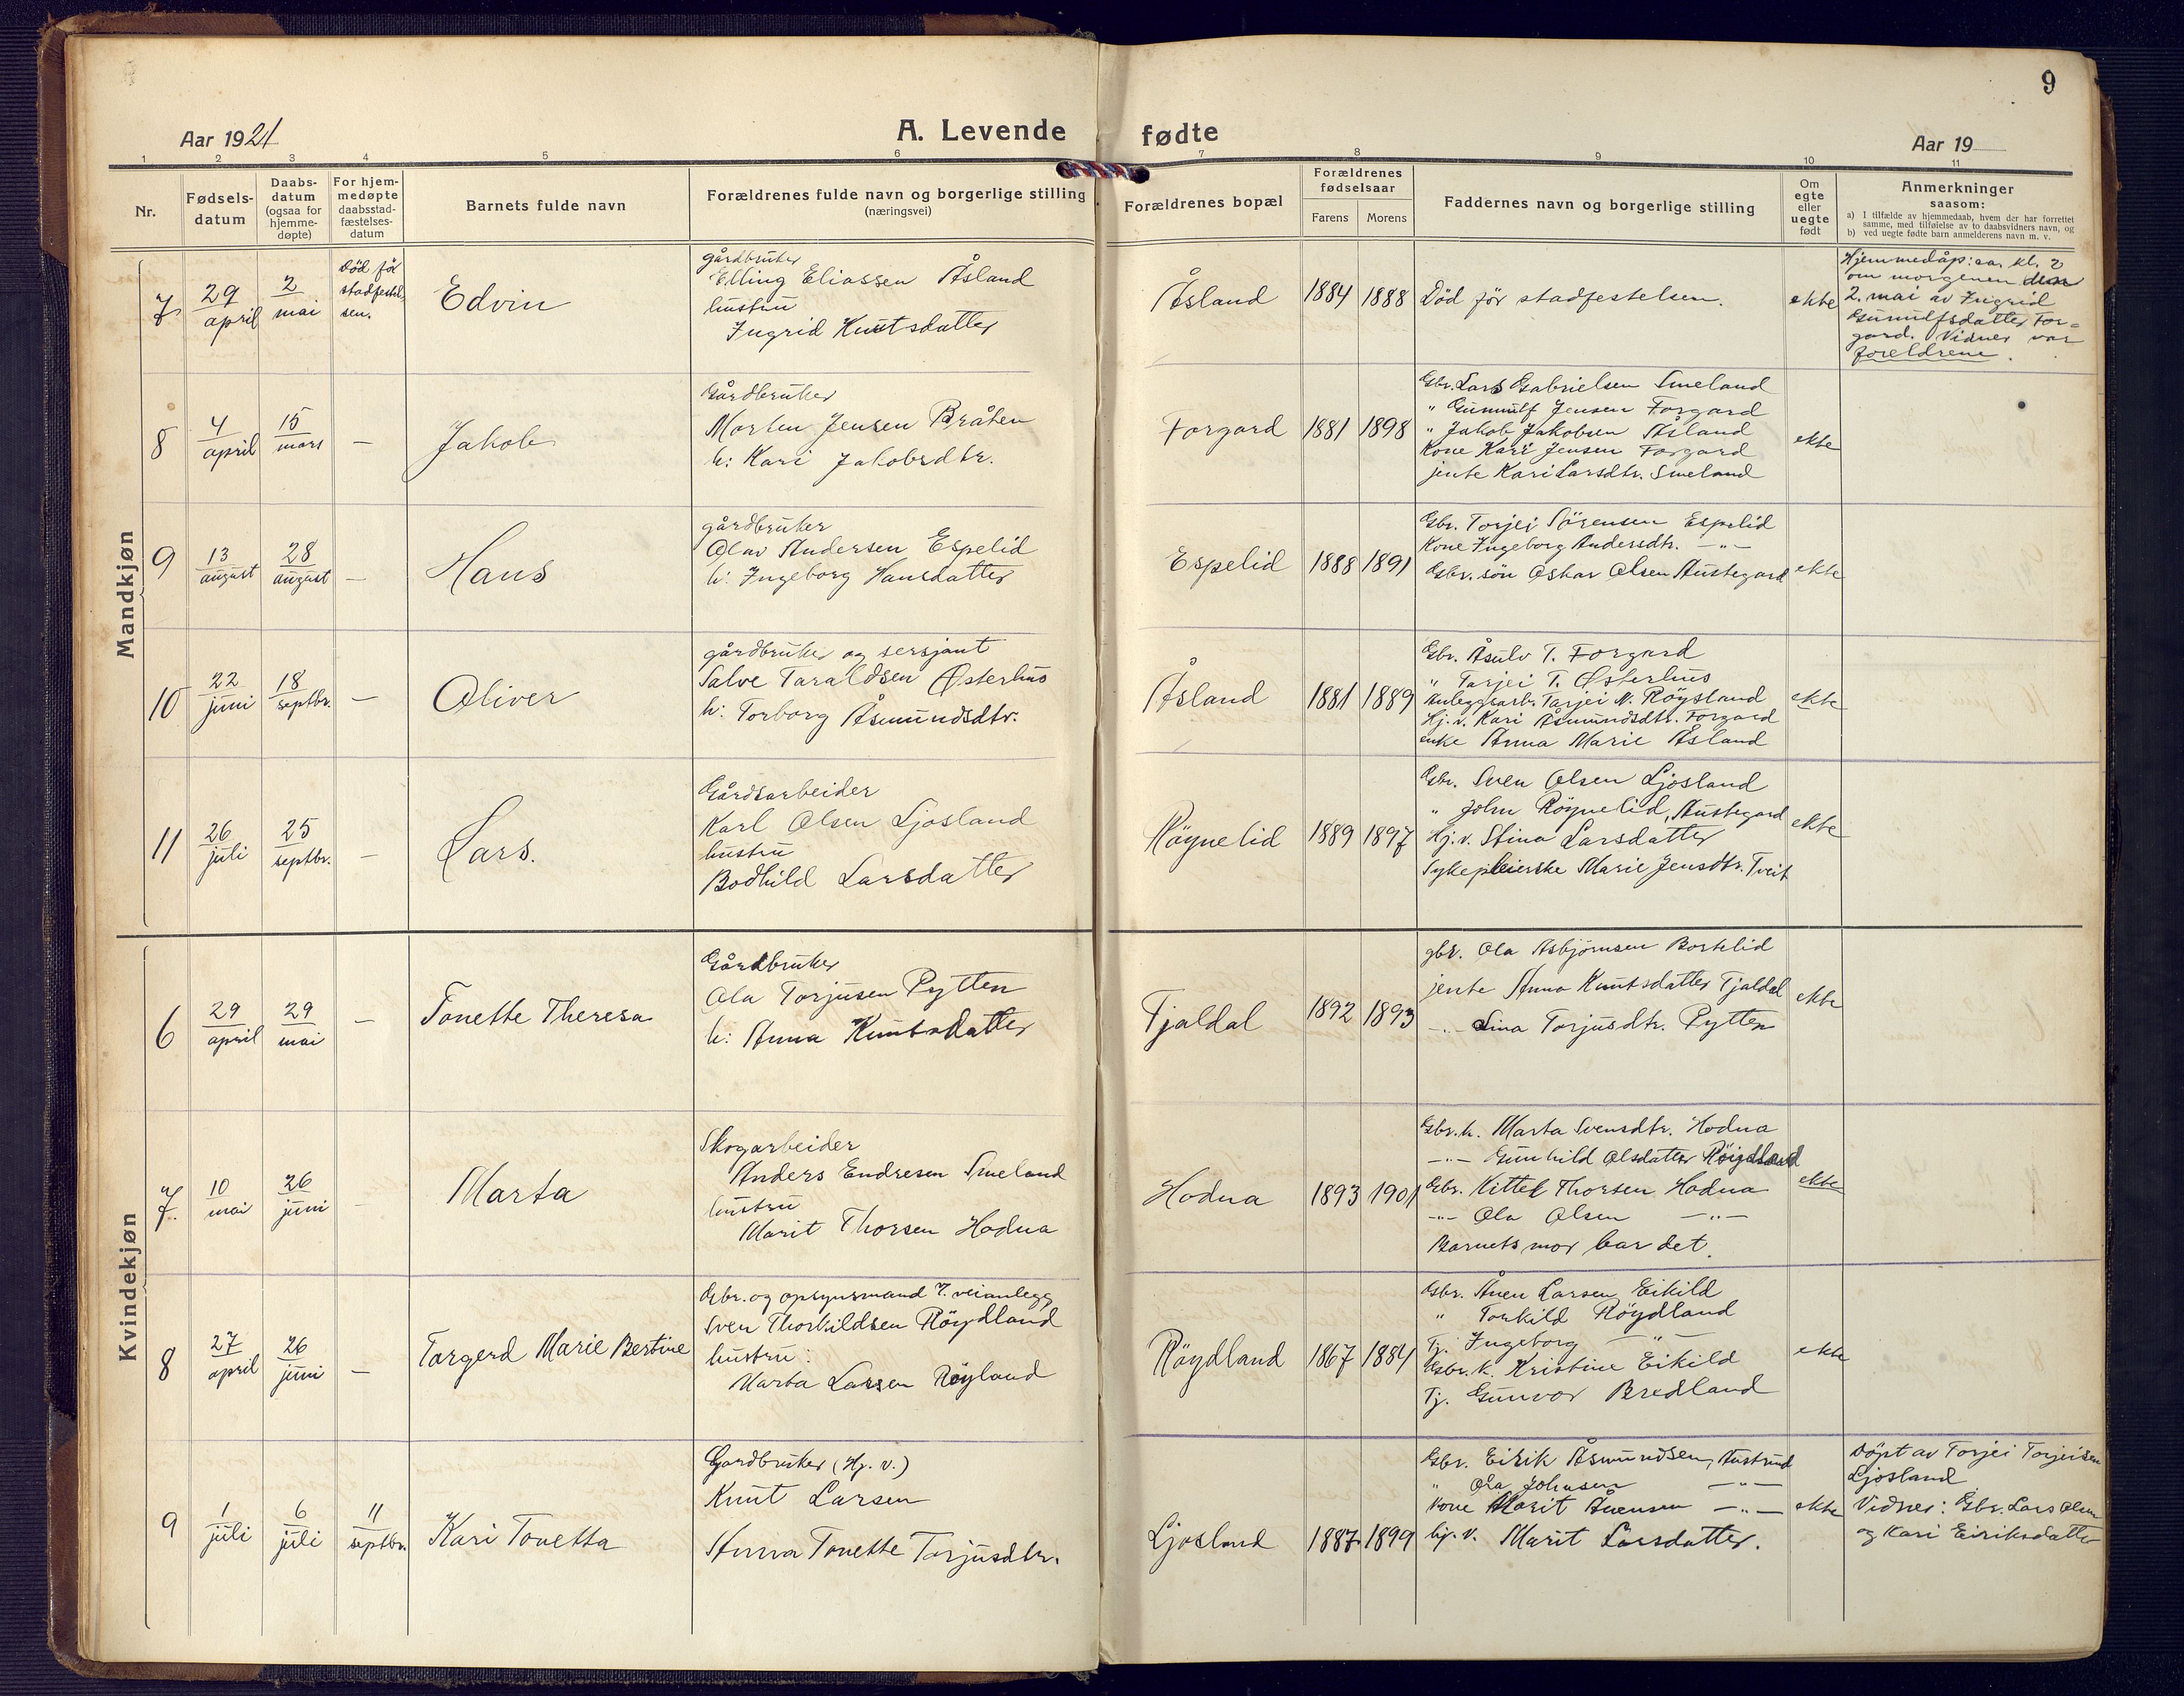 9
Aar 1921
A. Levende fødte
Aar 19
1 2 3 4 5 6 7 8 9 10 11
Nr.
Fødsels-
datum
Daabs-
datum
(ogsaa for
hjemme-
døpte)
For hjem-
medøpte
daabsstad-
fæstelses-
datum
Barnets fulde navn
Forældrenes fulde navn og borgerlige stilling
(næringsvei)
Forældrenes bopæl
Forældrenes
fødselsaar
Farens Morens
Faddernes navn og borgerlige stilling
Om
egte
eller
uegte
født
Anmerkninger
saasom:
a) I tilfælde av hjemmedaab, hvem der har forrettet
samme, med tilføielse av to daabsvidners navn, og
b) ved uegte fødte barn anmelderens navn m. v.
Mandkjøn
7
29
april
2
mai
Död för
stadfestel-
sen.
Edvin
gårdbruker
Elling Eliassen Åsland
hustru
Ingrid Knutsdatter
Åsland
1884 1888
Död för stadfestelsen.
ekte
Hjemmedåp: ca. kl. 2
om morgenen den
2. mai av Ingrid
Gunulfsdatter For-
gard. Vidner var
foreldrene.
8
4
april
15
mars
—
Jakob
Gårdbruker
Morten Jensen Bråten
h: Kari Jakobsdtr.
Forgard
1881 1898
Gbr. Lars Gabrielsen Smeland
" Gunnulf Jensen Forgard
" Jakob Jakobsen Åsland
Kone Kari Jensen Forgard
jente Kari Larsdtr. Smeland
ekte
9
13
august
28
august
—
Hans
gårdbruker
Olav Andersen Espelid
h: Ingeborg Hansdatter
Espelid
1888 1891
Gbr. Torjei Sörensen Espelid
Kone Ingeborg Andersdtr. —"—
Gbr. sön Oskar Olsen Austegard
ekte
10
22
juni
18
septbr.
—
Oliver
gårdbruker og sersjant
Salve Taraldsen Østerhus
h: Torborg Åsmundsdtr.
Åsland
1881 1889
Gbr. Åsulv T. Forgard
" Tarjei T. Østerhus
Anleggsarb. Tarjei N. Röysland
Hj. v. Kari Åsmundsdtr. Forgard
enke Anna Marie Åsland
ekte
11
26
juli
25
septbr.
—
Lars.
Gårdsarbeider
Karl Olsen Ljosland
hustru
Bodhild Larsdatter
Röynelid
1889 1897
Gbr. Sven Olsen Ljosland
" John Röynelid, Austegard
Hj. v. Stina Larsdatter
Sykepleierske Marie Jensdtr. Tveit
ekte
Kvindekjøn
6
29
april
29
mai
—
Tonette Theresa
Gårdbruker
Ola Torjusen Pytten
h: Anna Knutsdatter
Tjaldal
1892 1893
gbr. Ola Asbjörnsen Bortelid
jente Anna Knutsdatter Tjaldal
—"— Lina Torjusdtr. Pytten
ekte
7.
10
mai
26
juni
—
Marta
Skogarbeider
Anders Endresen Smeland
hustru
Marit Thorsen Hodna
Hodna
1893 1901
Gbr. k. Marta Svensdtr. Hodna
—"— Gunhild Olsdatter Röydland
Gbr. Kittel Thorsen Hodna
—"— Ola Olsen —"—
Barnets mor bar det.
ekte
8
27
april
26
juni
—
Torgerd Marie Bertine
Gbr. og opsynsmand v. veianlegg
Sven Thorkildsen Röydland
hustru:
Marta Larsen Röyland
Röydland
1867 1884
Gbr. Ånen Larsen Eikild
" Torkild Röydland
Tj. Ingeborg —"—
Gbr. k. Kristine Eikild
Tj. Gunvor Bredland
ekte
9
1
juli
6
juli
11
septbr.
Kari Tonetta
Gardbruker (Hj. v.)
Knut Larsen
Anna Tonette Torjusdtr.
Ljosland
1887 1899
Gbr. Eirik Åsmundsen, Austrud
" Ola Johnsen —"—
Kone Marit Ånensen —"—
hj. v. Marit Larsdatter.
ekte
Döpt av Torjei Torjeisen
Ljosland
Vidner: Gbr. Lars Olsen
og Kari Eiriksdatter